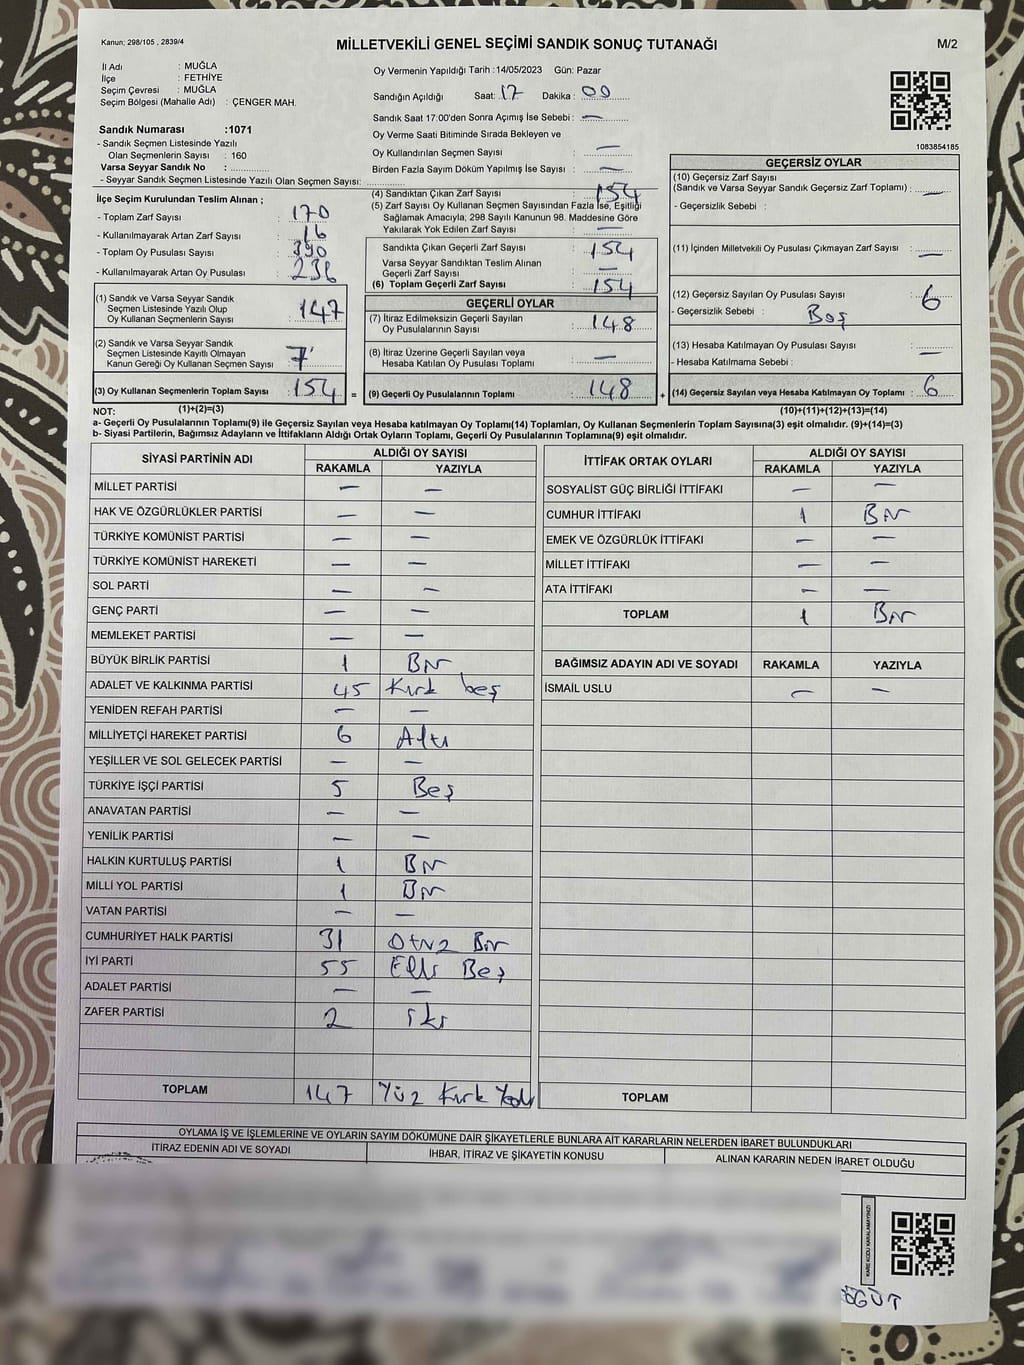 Kanun: 298/105 , 2839/4
MİLLETVEKİLİ GENEL SEÇİMİ SANDIK SONUÇ TUTANAĞI
M/2
İl Adı : MUĞLA
İlçe : FETHİYE
Seçim Çevresi : MUĞLA
Seçim Bölgesi (Mahalle Adı) : ÇENGER MAH.
Sandık Numarası :1071
- Sandık Seçmen Listesinde Yazılı
Olan Seçmenlerin Sayısı : 160
Varsa Seyyar Sandık No :
- Seyyar Sandık Seçmen Listesinde Yazılı Olan Seçmen Sayısı:
Oy Vermenin Yapıldığı Tarih :14/05/2023 Gün: Pazar
Sandığın Açıldığı Saat: 17 Dakika : 00
Sandık Saat 17:00'den Sonra Açımış İse Sebebi : —
Oy Verme Saati Bitiminde Sırada Bekleyen ve
Oy Kullandırılan Seçmen Sayısı : —
Birden Fazla Sayım Döküm Yapılmış İse Sayısı : —
1083854185
İlçe Seçim Kurulundan Teslim Alınan ;
- Toplam Zarf Sayısı : 170
- Kullanılmayarak Artan Zarf Sayısı : 16
- Toplam Oy Pusulası : 390
- Kullanılmayarak Artan Oy Pusulası : 236
(1) Sandık ve Varsa Seyyar Sandık
Seçmen Listesinde Yazılı Olup
Oy Kullanan Seçmenlerin Sayısı : 147
(2) Sandık ve Varsa Seyyar Sandık
Seçmen Listesinde Kayıtlı Olmayan
Kanun Gereği Oy Kullanan Seçmen Sayısı : 7
(3) Oy Kullanan Seçmenlerin Toplam Sayısı : 154
(1)+(2)=(3)
(4) Sandıktan Çıkan Zarf Sayısı : 154
(5) Zarf Sayısı Oy Kullanan Seçmen Sayısından Fazla İse, Eşitliği
Sağlamak Amacıyla, 298 Sayılı Kanunun 98. Maddesine Göre
Yakılarak Yok Edilen Zarf Sayısı : —
Sandıkta Çıkan Geçerli Zarf Sayısı : 154
Varsa Seyyar Sandıktan Teslim Alınan
Geçerli Zarf Sayısı : —
(6) Toplam Geçerli Zarf Sayısı : 154
GEÇERLİ OYLAR
(7) İtiraz Edilmeksizin Geçerli Sayılan
Oy Pusulalarının Sayısı : 148
(8) İtiraz Üzerine Geçerli Sayılan veya
Hesaba Katılan Oy Pusulası Toplamı : —
= (9) Geçerli Oy Pusulalarının Toplamı : 148 +
GEÇERSİZ OYLAR
(10) Geçersiz Zarf Sayısı
(Sandık ve Varsa Seyyar Sandık Geçersiz Zarf Toplamı) : —
- Geçersizlik Sebebi :
(11) İçinden Milletvekili Oy Pusulası Çıkmayan Zarf Sayısı : —
(12) Geçersiz Sayılan Oy Pusulası Sayısı : 6
- Geçersizlik Sebebi : Boş
(13) Hesaba Katılmayan Oy Pusulası Sayısı : —
- Hesaba Katılmama Sebebi :
(14) Geçersiz Sayılan veya Hesaba Katılmayan Oy Toplamı : 6
(10)+(11)+(12)+(13)=(14)
NOT:
a- Geçerli Oy Pusulalarının Toplamı(9) ile Geçersiz Sayılan veya Hesaba katılmayan Oy Toplamı(14) Toplamları, Oy Kullanan Seçmenlerin Toplam Sayısına(3) eşit olmalıdır. (9)+(14)=(3)
b- Siyasi Partilerin, Bağımsız Adayların ve İttifakların Aldığı Ortak Oyların Toplamı, Geçerli Oy Pusulalarının Toplamına(9) eşit olmalıdır.
SİYASİ PARTİNİN ADI ALDIĞI OY SAYISI
RAKAMLA YAZIYLA
MİLLET PARTİSİ — —
HAK VE ÖZGÜRLÜKLER PARTİSİ — —
TÜRKİYE KOMÜNİST PARTİSİ — —
TÜRKİYE KOMÜNİST HAREKETİ — —
SOL PARTİ — —
GENÇ PARTİ — —
MEMLEKET PARTİSİ — —
BÜYÜK BİRLİK PARTİSİ 1 Bir
ADALET VE KALKINMA PARTİSİ 45 Kırk beş
YENİDEN REFAH PARTİSİ — —
MİLLİYETÇİ HAREKET PARTİSİ 6 Altı
YEŞİLLER VE SOL GELECEK PARTİSİ — —
TÜRKİYE İŞÇİ PARTİSİ 5 Beş
ANAVATAN PARTİSİ — —
YENİLİK PARTİSİ — —
HALKIN KURTULUŞ PARTİSİ 1 Bir
MİLLİ YOL PARTİSİ 1 Bir
VATAN PARTİSİ — —
CUMHURİYET HALK PARTİSİ 31 Otuz Bir
İYİ PARTİ 55 Elli Beş
ADALET PARTİSİ — —
ZAFER PARTİSİ 2 iki
TOPLAM 147 Yüz Kırk Yedi
İTTİFAK ORTAK OYLARI ALDIĞI OY SAYISI
RAKAMLA YAZIYLA
SOSYALİST GÜÇ BİRLİĞİ İTTİFAKI — —
CUMHUR İTTİFAKI 1 Bir
EMEK VE ÖZGÜRLÜK İTTİFAKI — —
MİLLET İTTİFAKI — —
ATA İTTİFAKI — —
TOPLAM 1 Bir
BAĞIMSIZ ADAYIN ADI VE SOYADI RAKAMLA YAZIYLA
İSMAİL USLU — —
TOPLAM
OYLAMA İŞ VE İŞLEMLERİNE VE OYLARIN SAYIM DÖKÜMÜNE DAİR ŞİKAYETLERLE BUNLARA AİT KARARLARIN NELERDEN İBARET BULUNDUKLARI
İTİRAZ EDENİN ADI VE SOYADI
İHBAR, İTİRAZ VE ŞİKAYETİN KONUSU
ALINAN KARARIN NEDEN İBARET OLDUĞU
KARE KODU KARALAMAYINIZ!